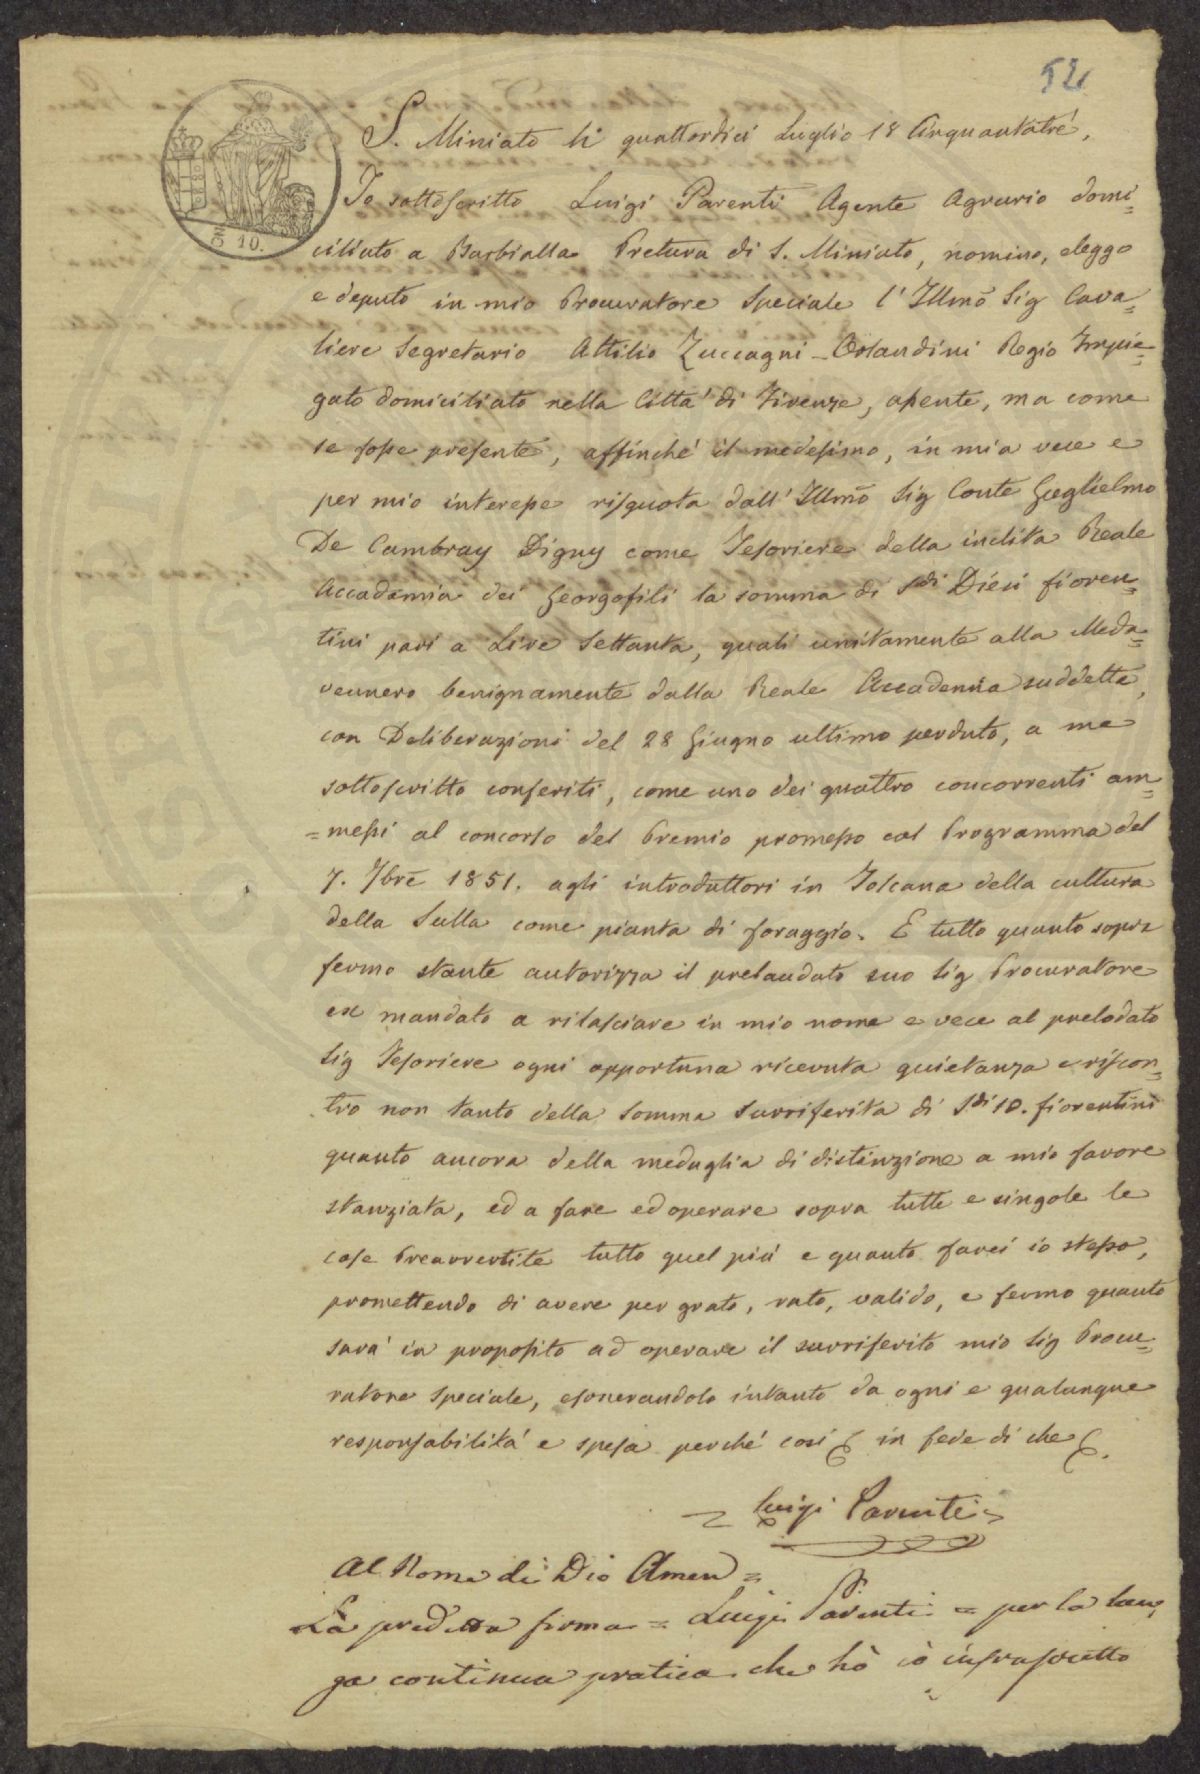 52
S. Miniato li quattordici Luglio 18 Cinquantatré.
10.
Io sottoscritto Luigi Parenti Agente Agrario domi=
ciliato a Barbialla Pretura di S. Miniato, nomino, eleggo
e deputo in mio Procuratore Speciale l'Illmō Sig Cava=
liere Segretario Attilio Zuccagni-Orlandini Regio Impie=
gato domiciliato nella Città di Firenze, assente, ma come
se fosse presente, affinché il medesimo, in mia vece e
per mio interesse risquota dall'Illmō Sig Conte Guglielmo
De Cambray Digny come Tesoriere della inclita Reale
Accademia dei Georgofili la somma di Sdi Dieci fioren=
tini pari a Lire Settanta, quali unitamente alla Meda=
vennero benignamente dalla Reale Accademia suddetta,
con Deliberazioni del 28 Giugno ultimo perduto, a me
sottoscritto conferiti, come uno dei quattro concorrenti am=
=messi al concorso del Premio promesso col Programma del
7. 7brē 1851. agli introduttori in Toscana della cultura
della Sulla come pianta di foraggio. E tutto quanto sopra
fermo stante autorizza il prelaudato suo Sig Procuratore
ex mandato a rilasciare in mio nome e vece al prelodato
Sig Tesoriere ogni opportuna ricevuta quietanza e riscon=
tro non tanto della somma surriferita di Sdi 10. fiorentini
quanto ancora della medaglia di distinzione a mio favore
stanziata, ed a fare ed operare sopra tutte e singole le
cose preavvertite tutto quel più e quanto farei io stesso,
promettendo di avere per grato, rato, valido, e fermo quanto
sarà in proposito ad operare il surriferito mio Sig Procu=
ratore speciale, esonerandolo intanto da ogni e qualunque
responsabilità e spesa perché così in fede di che
Luigi Parenti
Al Nome di Dio Amen =
La predetta firma = Luigi Parenti = per la lun,
ga continua pratica che hò io infrascritto